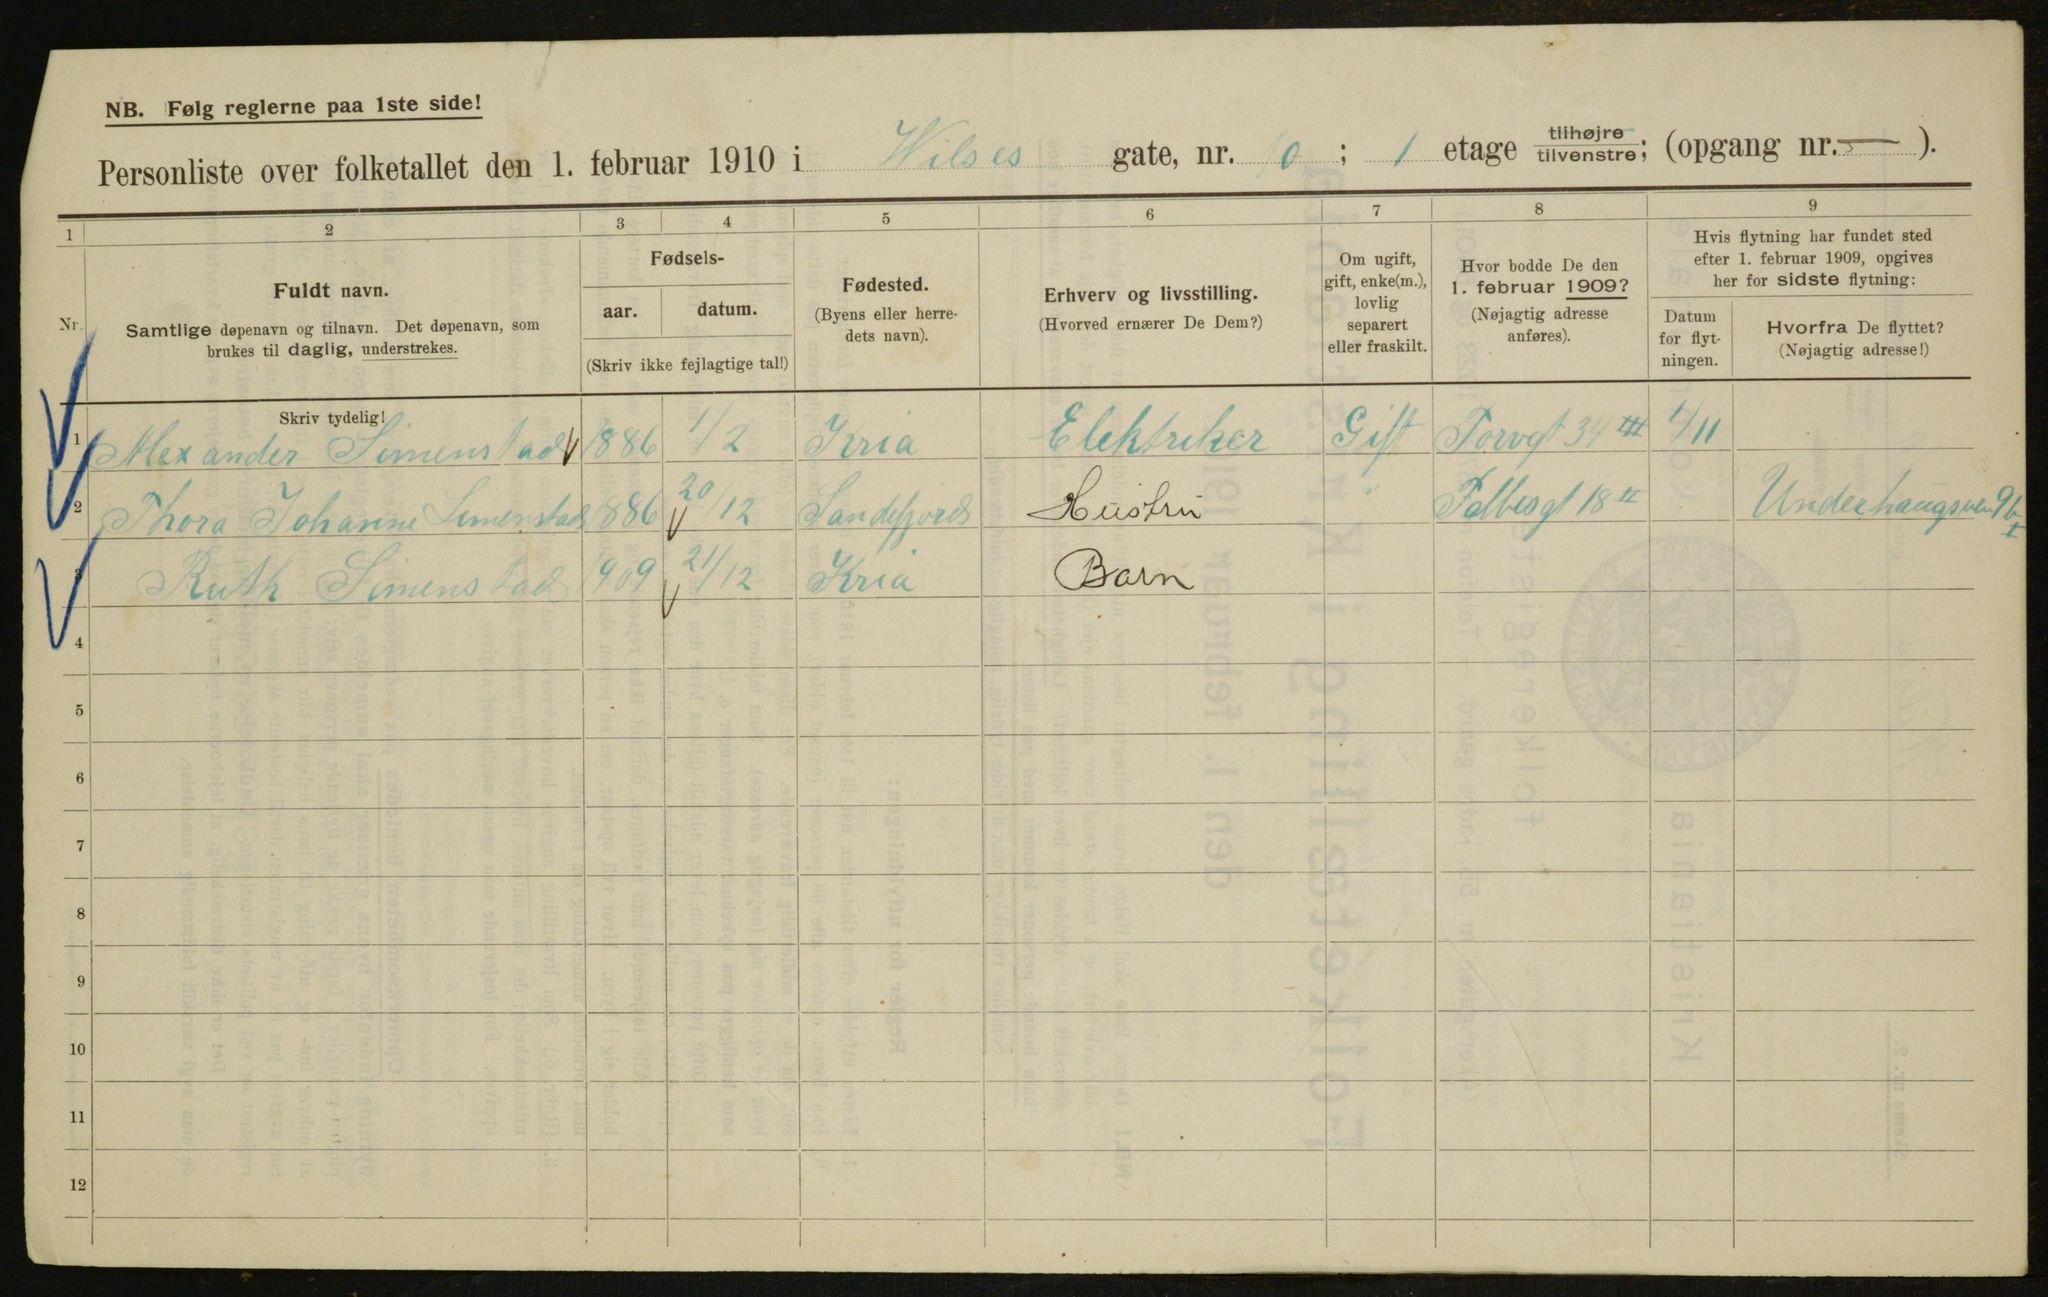 NB. Følg reglerne paa 1ste side!
Personliste over folketallet den 1. februar 1910 i Wilses gate, nr. 10 ; 1 etage tilhøjre/tilvenstre; (opgang nr. — ).
1 2 3 4 5 6 7 8 9
Nr.
Fuldt navn.
Samtlige døpenavn og tilnavn. Det døpenavn, som
brukes til daglig, understrekes.
Fødsels-
aar. datum.
(Skriv ikke fejlagtige tal!)
Fødested.
(Byens eller herre-
dets navn).
Erhverv og livsstilling.
(Hvorved ernærer De Dem?)
Om ugift,
gift, enke(m.),
lovlig
separert
eller fraskilt.
Hvor bodde De den
1. februar 1909?
(Nøjagtig adresse
anføres).
Hvis flytning har fundet sted
efter 1. februar 1909, opgives
her for sidste flytning:
Datum
for flyt-
ningen.
Hvorfra De flyttet?
(Nøjagtig adresse!)
Skriv tydelig!
1 Alexander Simenstad 1886 1/2 Kria Elektriker Gift Torvgt 34 III 1/11
2 Thora Johanne Simenstad 1886 20/12 Sandefjord Hustru " Falbesgt 18 II Underhaugsvn 9b I
3 Ruth Simenstad 1909 21/12 Kria Barn
4
5
6
7
8
9
10
11
12